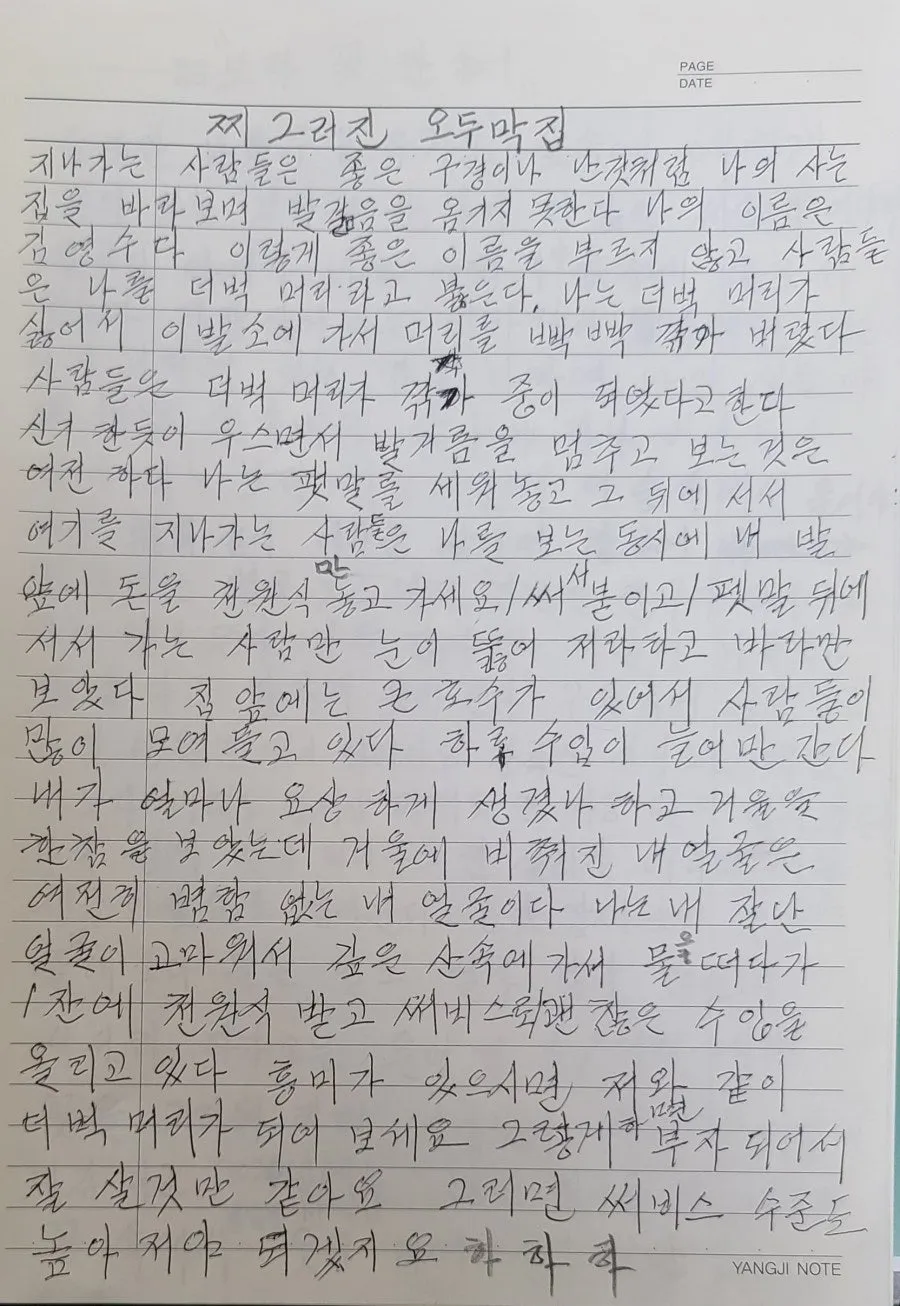 PAGE
DATE
찌그러진 오두막집
지나가는 사람들은 좋은 구경이나 난것처럼 나의 사는
집을 바라보며 발걸음을 옴키지 못한다 나의 이름은
김영수다 이렇게 좋은 이름을 부르지 않고 사람들
은 나를 더벅 머리라고 붋은다. 나는 더벅 머리가
싫어서 이발소에 가서 머리를 빡빡 깎가 버렸다
사람들은 더벅 머리가 깎가 중이 되였다고 한다
신기 한듯이 우스면서 발거름을 멈추고 보는것은
여전 하다 나는 팻말를 세워놓고 그 뒤에 서서
여기를 지나가는 사람들은 나를 보는 동시에 내 발
앞에 돈을 천원식만 놓고 가세요/써서 붙이고/펫말 뒤에
서서 가는 사람만 눈이 뚫어 저라 하고 바라만
보았다 집 앞에는 큰 호수가 있어서 사람들이
많이 모여들고 있다 하루 수입이 늘어만 간다
내가 얼마나 요상 하게 생겼나 하고 거울을
한참을 보았는데 거울에 비쮜진 내얼굴은
여전히 변함 없는 내 얼굴이다 나는 내 잘난
얼굴이 고마워서 깊은 산속에가서 물을 떠다가
1잔에 천원식 받고 써비스로 괜찮은 수입을
올리고 있다 흥미가 있으시면 저와 같이
더벅 머리가 되여 보세요 그렇게하면 부자 되어서
잘 살것만 같아요 그러면 써비스 수준도
높아저야 되겠지요 하 하 하
YANGJI NOTE